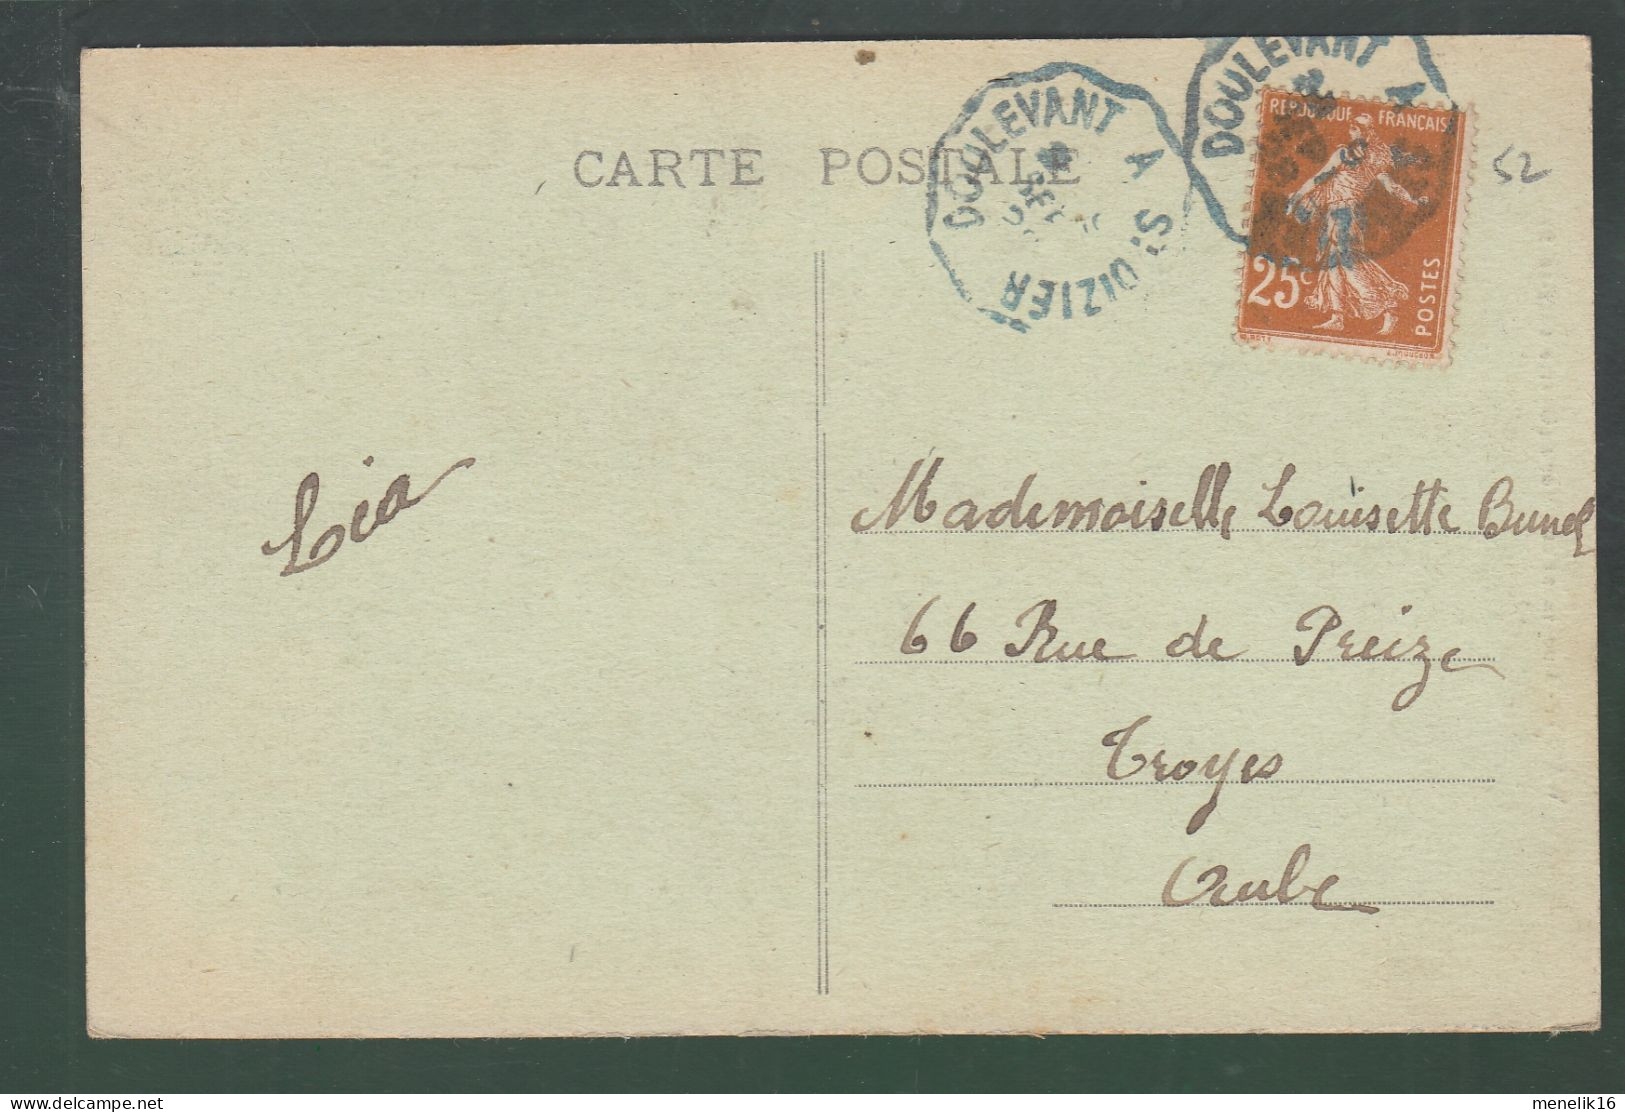 CARTE POSTALE
DOULEVANT A ST DIZIER
DOULEVANT A
REPUBLIQUE FRANÇAISE
25c
POSTES
52
Lia
Mademoiselle Louisette Brunel
66 Rue de Preize
Troyes
Aube
delcampe.net
menelik16